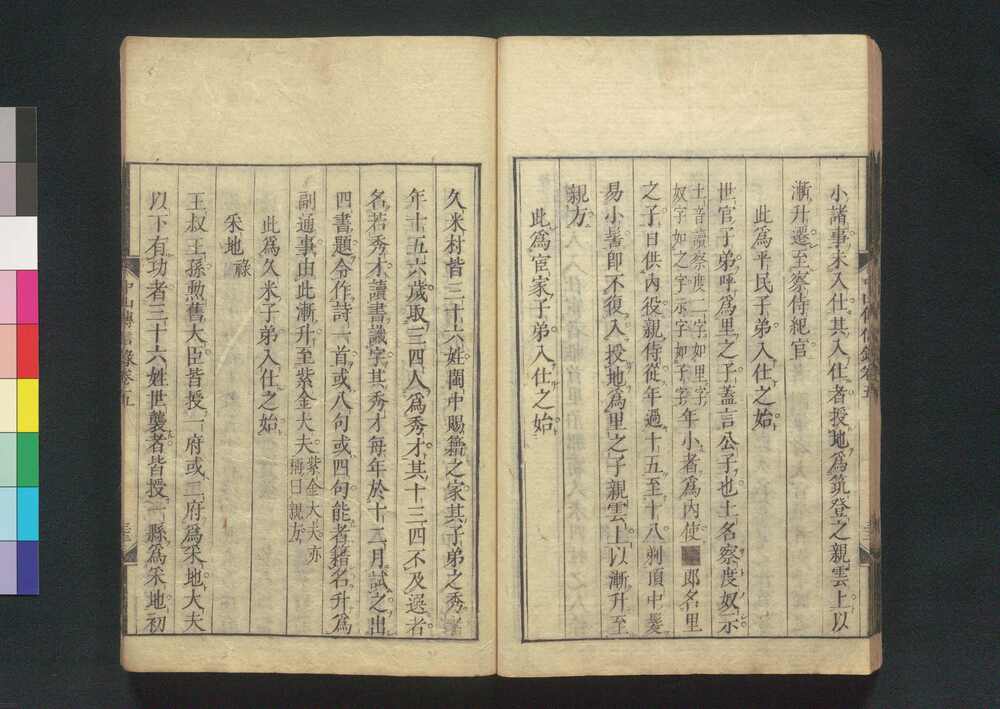 小諸事未入仕其入仕者授地爲筑登之親雲上以
漸升遷至察侍紀官
此爲平民子弟入仕之始
世官子弟呼爲里之子蓋言公子也土名察度奴示
土音讀察度二字如里字
奴字如之字示字如子字
年小者爲内使
郎名里
之子日供内役親侍從年過十五至十八剃頂中髮
易小髻即不復入授地爲里之子親雲上以漸升至
親方
此爲宦家子弟入仕之始
久米村皆三十六姓閩中賜籍之家其子弟之秀者
年十五六歲取三四人爲秀才其十三四不及選者
名若秀才讀書識字其秀才每年於十二月試之出
四書題令作詩一首或八句或四句能者籍名升爲
副通事由此漸升至紫金大夫
紫金大夫亦
稱曰親方
此爲久米子弟入仕之始
采地祿
王叔王孫勲舊大臣皆授一府或二府爲采地大夫
以下有功者三十六姓世襲者皆授一縣爲采地初
中山傳信錄卷五